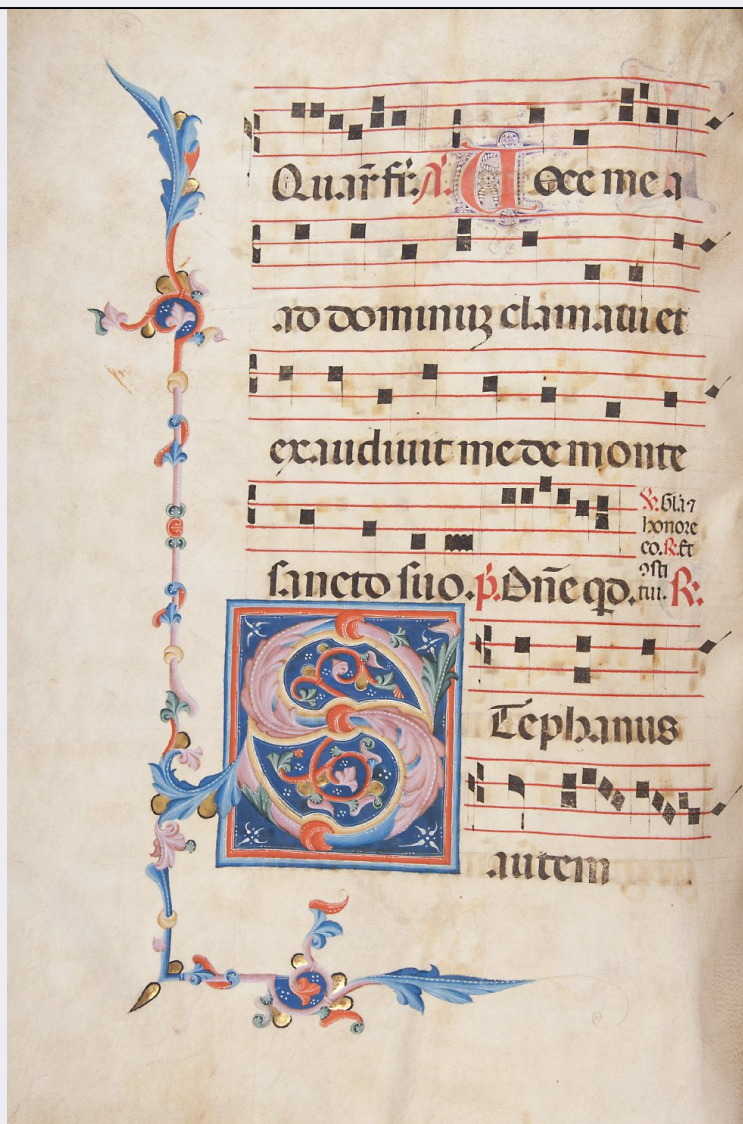 Quar̄ fr̄. A. Uoce mea
ad dominuz clamaui et
exaudiuit me de monte
sancto suo. p̄. Dn̄e qd. R:
V. Gl̄a ⁊
honore
co. R. Et
ꝯsti
tui.
Tephanus
autem